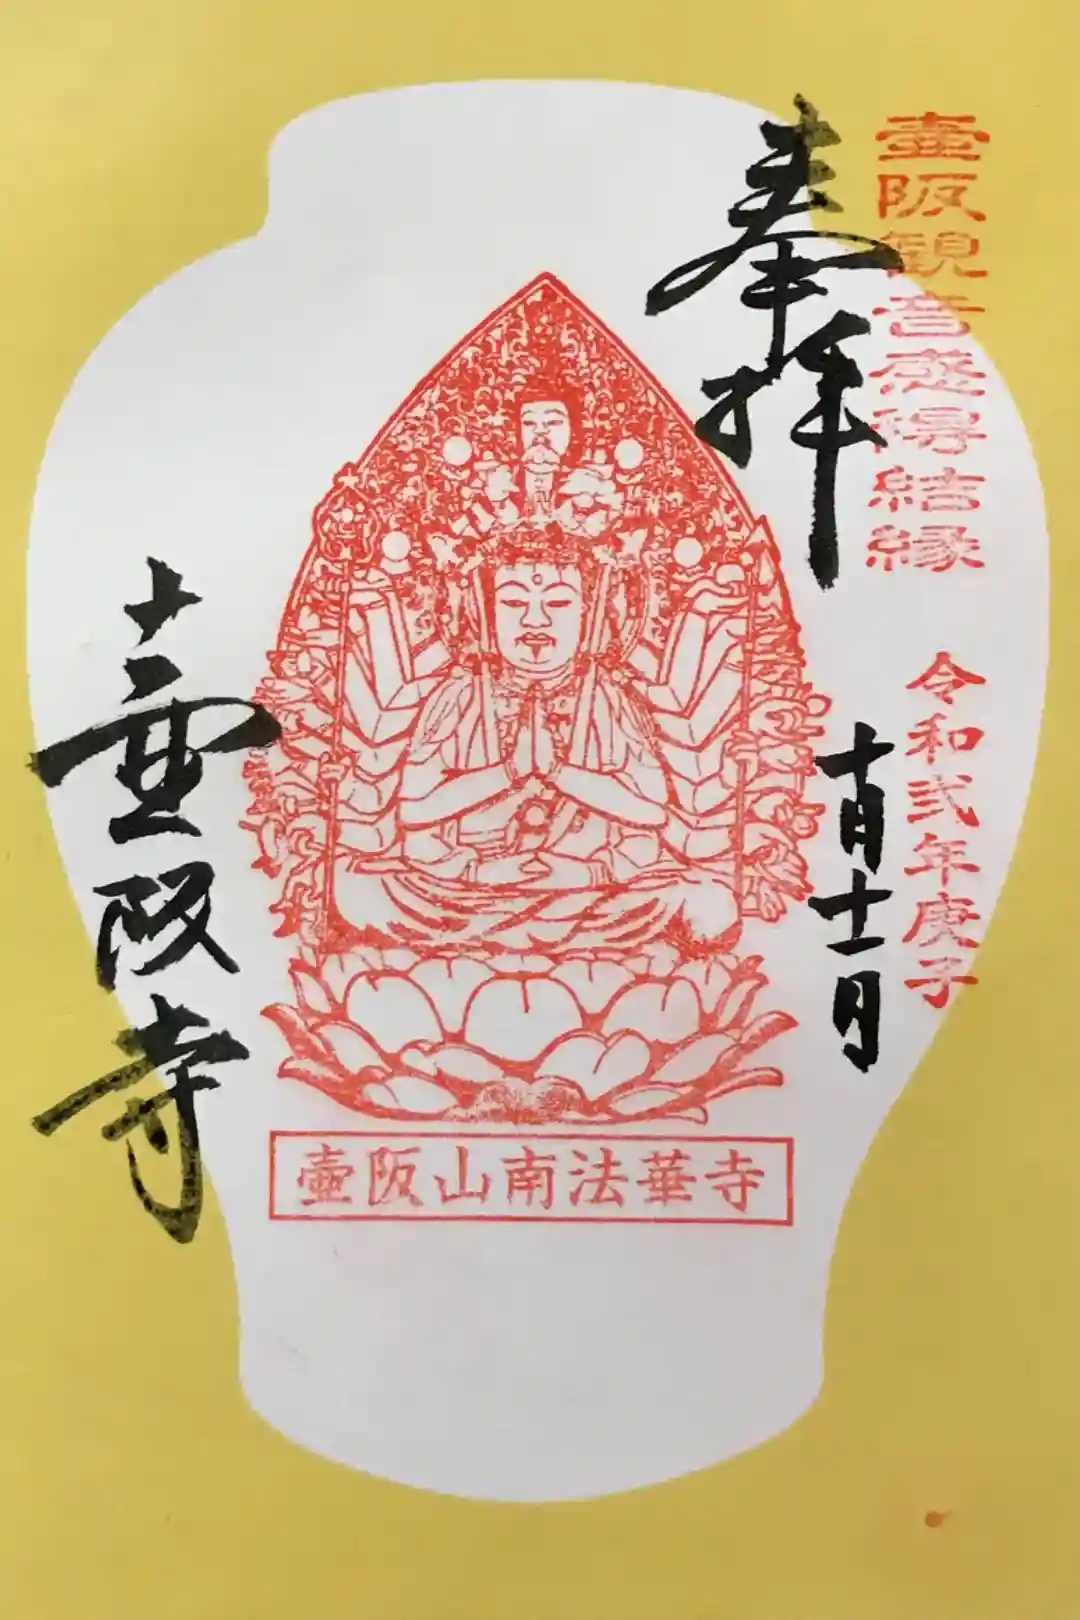 壷阪観音感得結縁 令和弐年庚子
奉拝
十月十一日
壷阪山南法華寺
壷阪寺